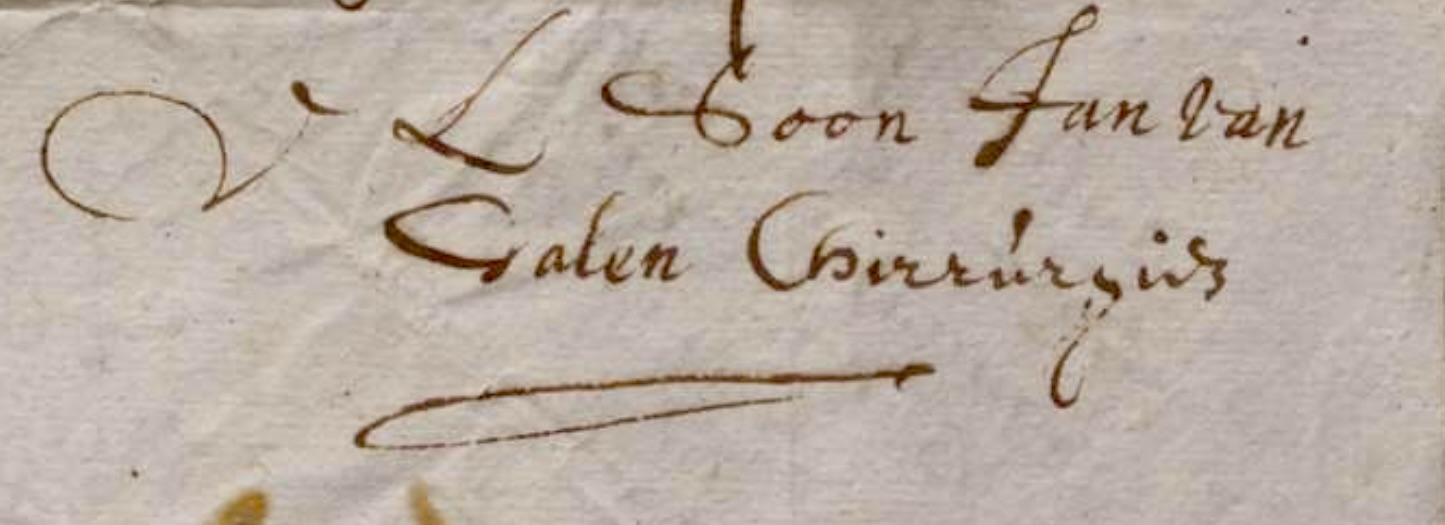 V L Soon Jan van
Galen Chirrúrgús